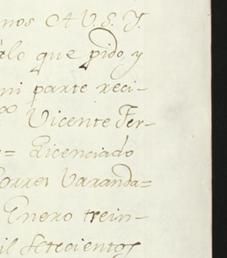 nos A V. S. Y.
que pido, y
mi parte reci-
Vicente Fer-
= Licenciado
Torres Varanda=
Enero trein-
mil setecientos